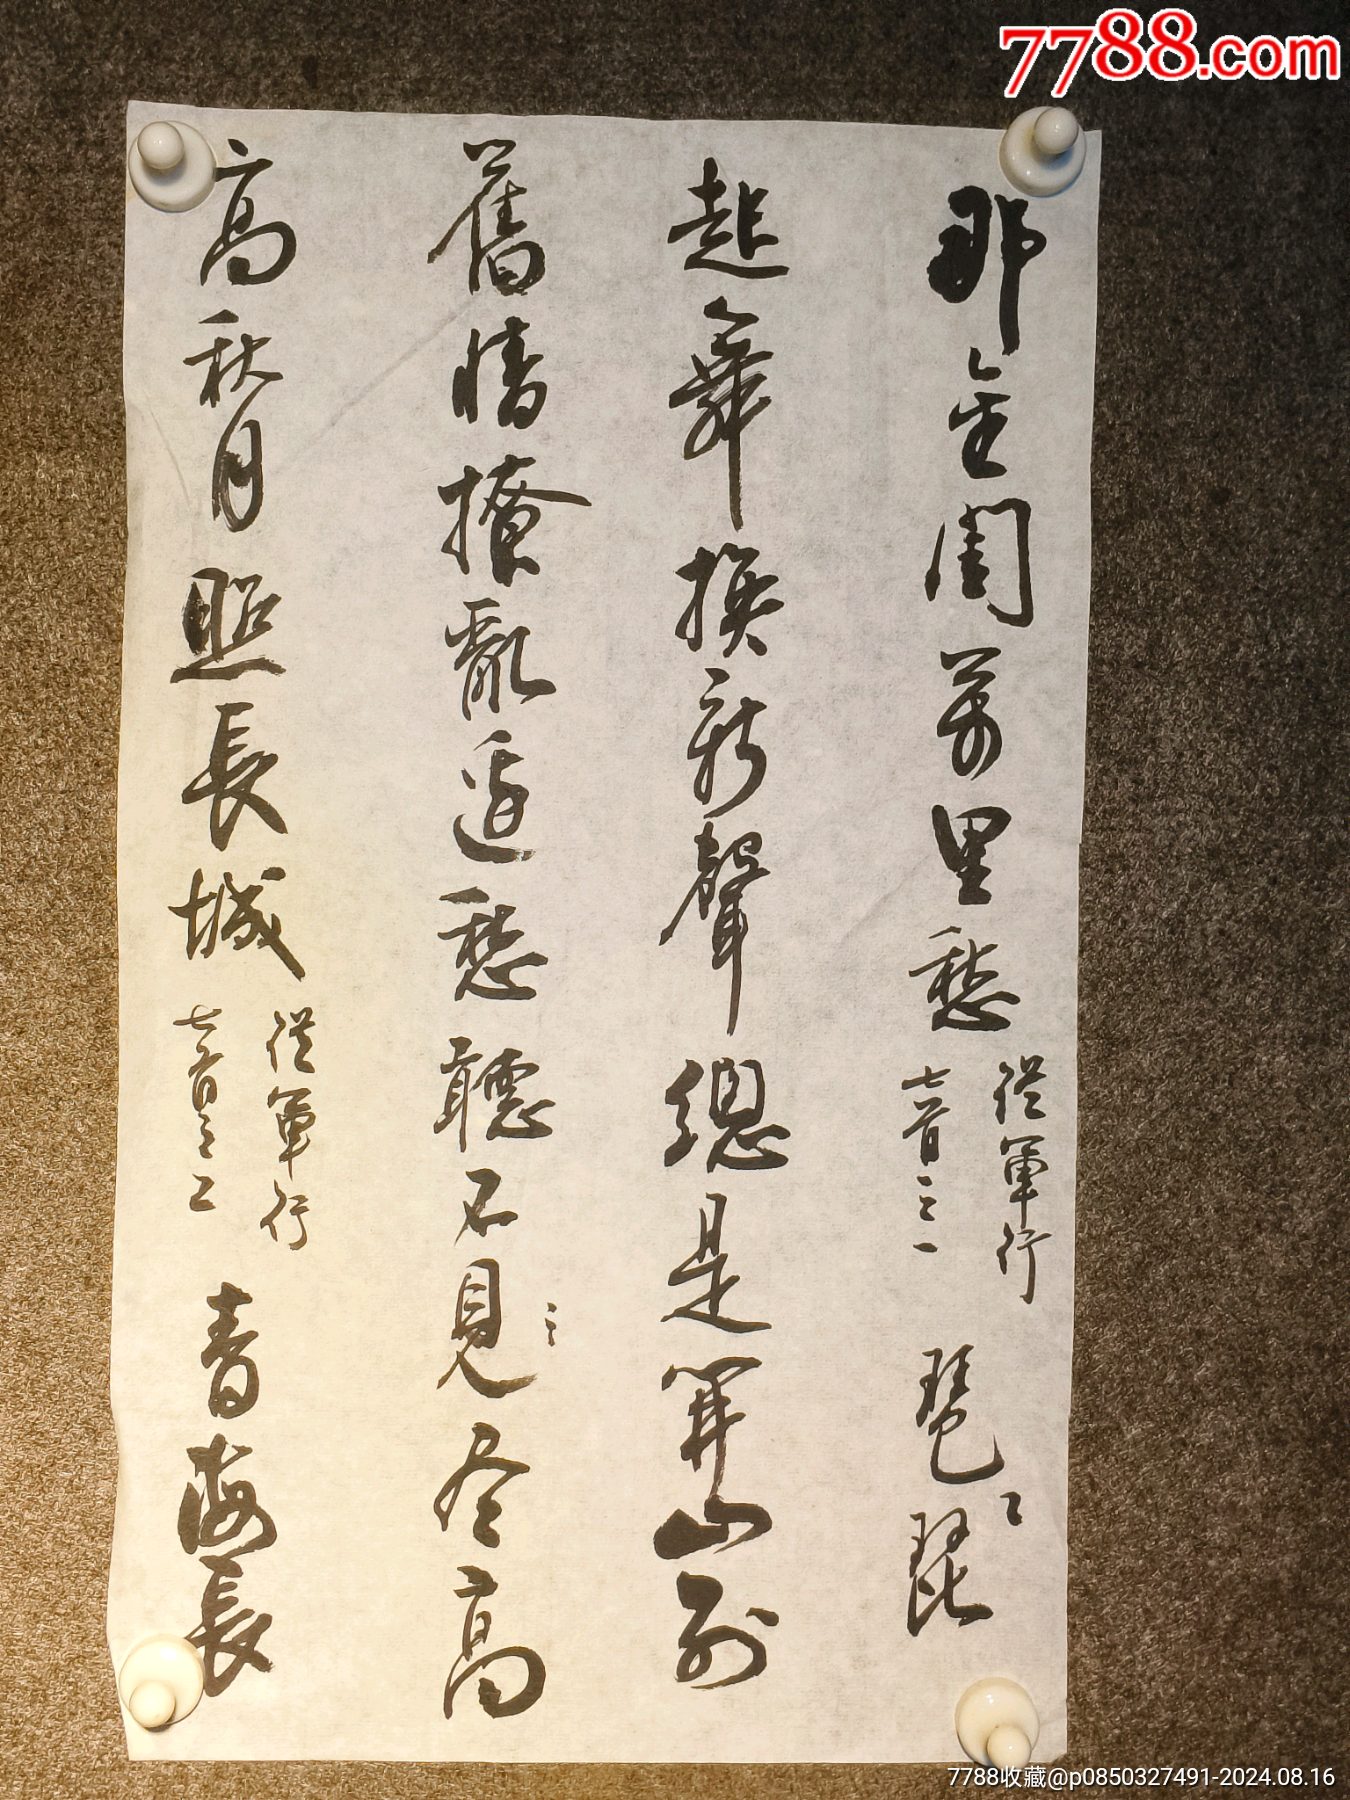 7788.com
那金閨萬里愁
從軍行
七首之一
琶琵
起舞換新聲總是關山別
舊情撩亂邊愁聽不見尽高
高秋月照長城
從軍行
七首之二
青海長
7788收藏@p0850327491-2024.08.16